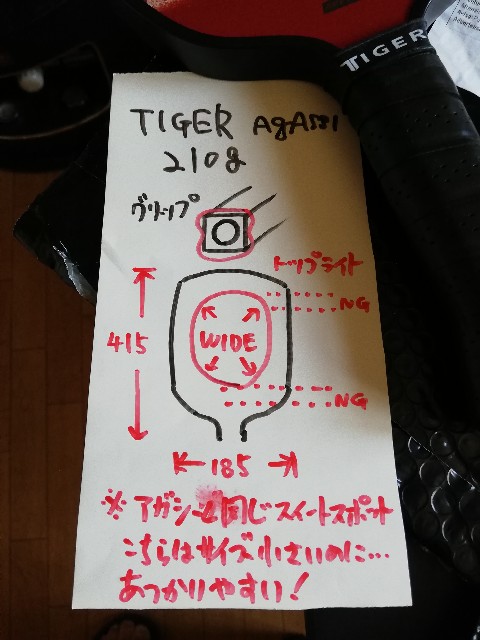 TIGER
TIGER AgASSI
210g
グリップ
トップライト
NG
WIDE
415
NG
185
※アガシーと同じスイートスポット
こちらはサイズ小さいのに…
あつかりやすい！